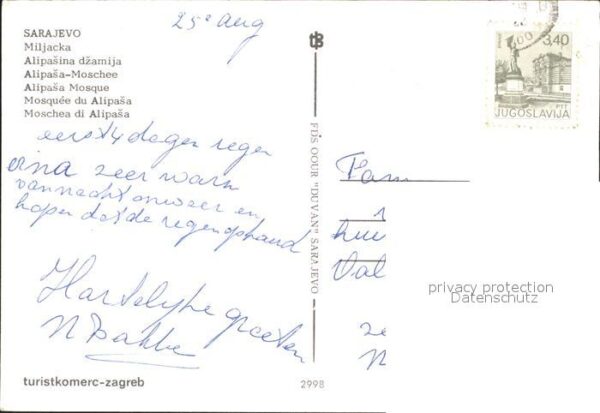 25e aug
SARAJEVO
Miljacka
Alipašina džamija
Alipaša-Moschee
Alipaša Mosque
Mosquée du Alipaša
Moschea di Alipaša
eerst 4 dagen regen
erna zeer warm
vannacht onweer en
hopen dat de regen ophoud
Hartelijke groeten
turistkomerc-zagreb
FDS OOUR "DUVAN" SARAJEVO
2998
3,40
JUGOSLAVIJA
PTT
Fam
Val
privacy protection
Datenschutz